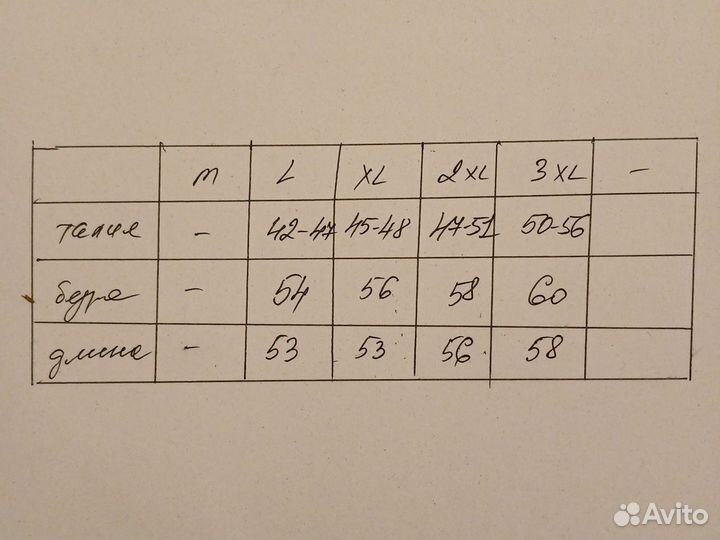 м L XL 2XL 3XL -
талия - 42-47 45-48 47-51 50-56
бедра - 54 56 58 60
длина - 53 53 56 58
Avito